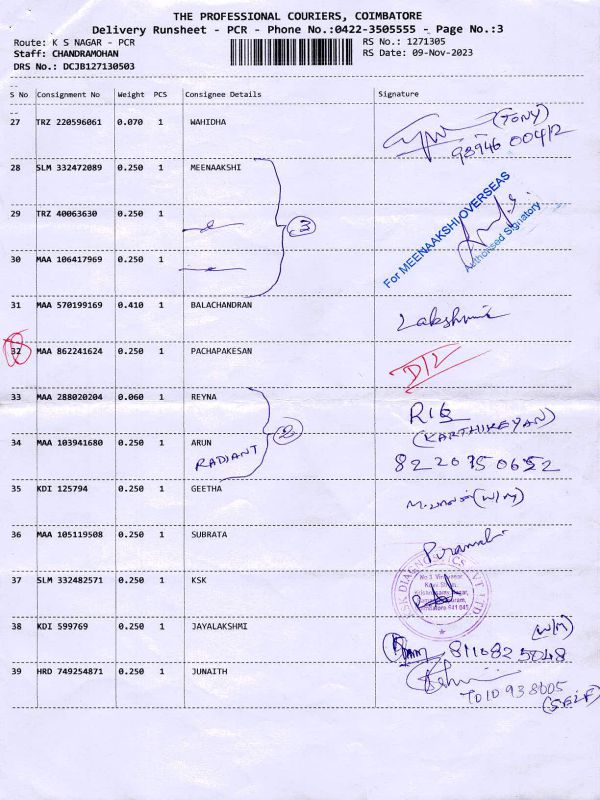 THE PROFESSIONAL COURIERS, COIMBATORE
Delivery Runsheet - PCR - Phone No.:0422-3505555 - Page No.:3
Route: K S NAGAR - PCR RS No.: 1271305
Staff: CHANDRAMOHAN RS Date: 09-Nov-2023
DRS No.: DCJB127130503
S No Consignment No Weight PCS Consignee Details Signature
27 TRZ 220596061 0.070 1 WAHIDHA (TONY)
98946 00412
28 SLM 332472089 0.250 1 MEENAAKSHI
29 TRZ 40063630 0.250 1 3
For MEENAAKSHI OVERSEAS
Authorised Signatory
30 MAA 106417969 0.250 1
31 MAA 570199169 0.410 1 BALACHANDRAN Lakshmi
32 MAA 862241624 0.250 1 PACHAPAKESAN D/L
33 MAA 288020204 0.060 1 REYNA
(KARTHIKEYAN)
34 MAA 103941680 0.250 1 ARUN 2
RADIANT 8220750652
35 KDI 125794 0.250 1 GEETHA (W/M)
36 MAA 105119508 0.250 1 SUBRATA
37 SLM 332482571 0.250 1 KSK
KSK DIAGNOSTICS PVT LTD
38 KDI 599769 0.250 1 JAYALAKSHMI (W/M)
8110825048
39 HRD 749254871 0.250 1 JUNAITH
7010938005
(SELF)